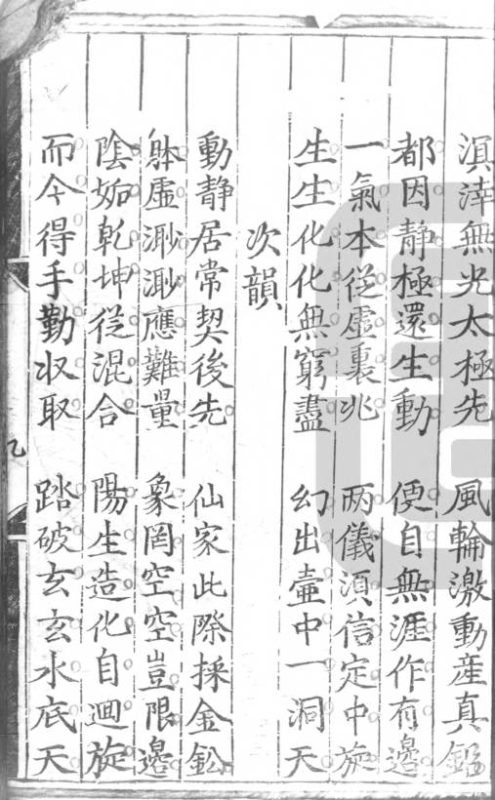 溟涬無光太極先 風輪激動産真鈆
都因静極還生動 便自無涯作有邉
一氣本從虚裏兆 两儀湏信定中旋
生生化化無窮盡 幻出壷中一洞天
次韻
動静居常契後先 仙家此際採金鈆
躰虚渺渺應難量 象罔空空豈限邉
陰姤乾坤從混合 陽生造化自迴旋
而今得手勤収取 踏破玄玄水底天